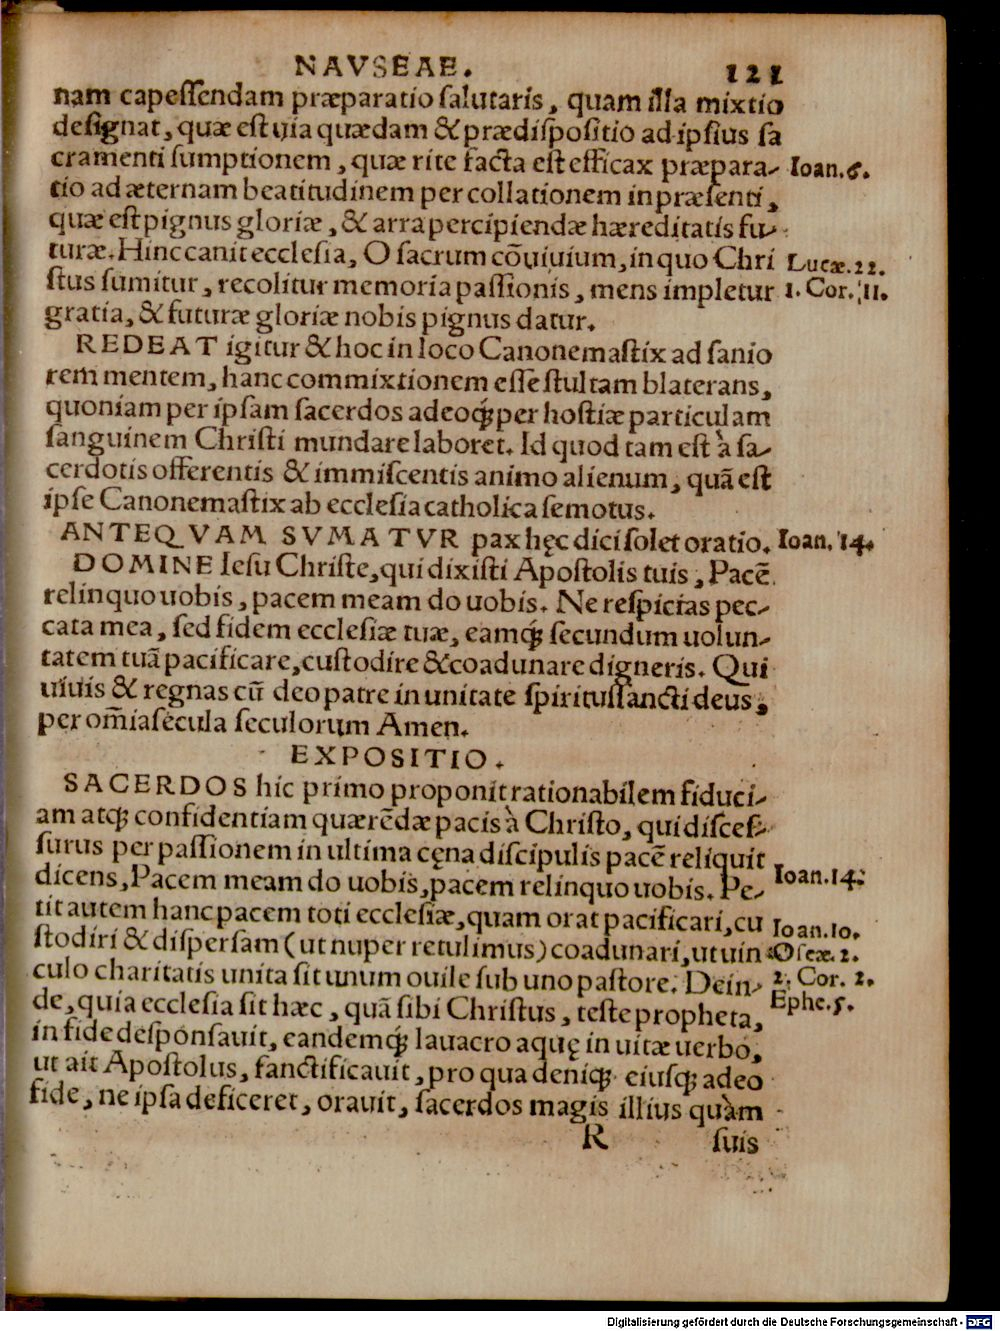 NAVSEAE. 121
nam capeſſendam præparatio ſalutaris, quam illa mixtio
deſignat, quæ eſt uia quædam & prædiſpoſitio ad ipſius ſa
cramenti ſumptionem, quæ rite facta eſt efficax præpara- Ioan. 6.
tio ad æternam beatitudinem per collationem in præſenti,
quæ eſt pignus gloriæ, & arra percipiendæ hæreditatis fu-
turæ. Hinc canit eccleſia, O ſacrum cōuiuium, in quo Chri Lucæ. 22.
ſtus ſumitur, recolitur memoria paſſionis, mens impletur 1. Cor. 11.
gratia, & futuræ gloriæ nobis pignus datur.
REDEAT igitur & hoc in loco Canonemaſtix ad ſanio
rem mentem, hanc commixtionem eſſe ſtultam blaterans,
quoniam per ipſam ſacerdos adeoq́; per hoſtiæ particulam
ſanguinem Chriſti mundare laboret. Id quod tam eſt à ſa-
cerdotis offerentis & immiſcentis animo alienum, quā eſt
ipſe Canonemaſtix ab eccleſia catholica ſemotus.
ANTEQVAM SVMATVR pax hęc dici ſolet oratio. Ioan. 14.
DOMINE Ieſu Chriſte, qui dixiſti Apoſtolis tuis, Pacē
relinquo uobis, pacem meam do uobis. Ne reſpicias pec-
cata mea, ſed fidem eccleſiæ tuæ, eamq́; ſecundum uolun-
tatem tuā pacificare, cuſtodire & coadunare digneris. Qui
uiuis & regnas cū deo patre in unitate ſpirituſſancti deus,
per om̄ia ſecula ſeculorum Amen.
EXPOSITIO.
SACERDOS hic primo proponit rationabilem fiduci-
am atq; confidentiam quærēdæ pacis à Chriſto, qui diſceſ-
ſurus per paſſionem in ultima cęna diſcipulis pacē reliquit
dicens, Pacem meam do uobis, pacem relinquo uobis. Pe- Ioan. 14.
tit autem hanc pacem toti eccleſiæ, quam orat pacificari, cu Ioan. 10.
ſtodiri & diſperſam (ut nuper retulimus) coadunari, ut uin Oſeæ. 2.
culo charitatis unita ſit unum ouile ſub uno paſtore. Dein- 2. Cor. 2.
de, quia eccleſia ſit hæc, quā ſibi Chriſtus, teſte propheta, Ephe. 5.
in fide deſponſauit, eandemq́; lauacro aquę in uitæ uerbo,
ut ait Apoſtolus, ſanctificauit, pro qua deniq; eiuſq; adeo
fide, ne ipſa deficeret, orauit, ſacerdos magis illius quàm
R ſuis
Digitalisierung gefördert durch die Deutsche Forschungsgemeinschaft - DFG